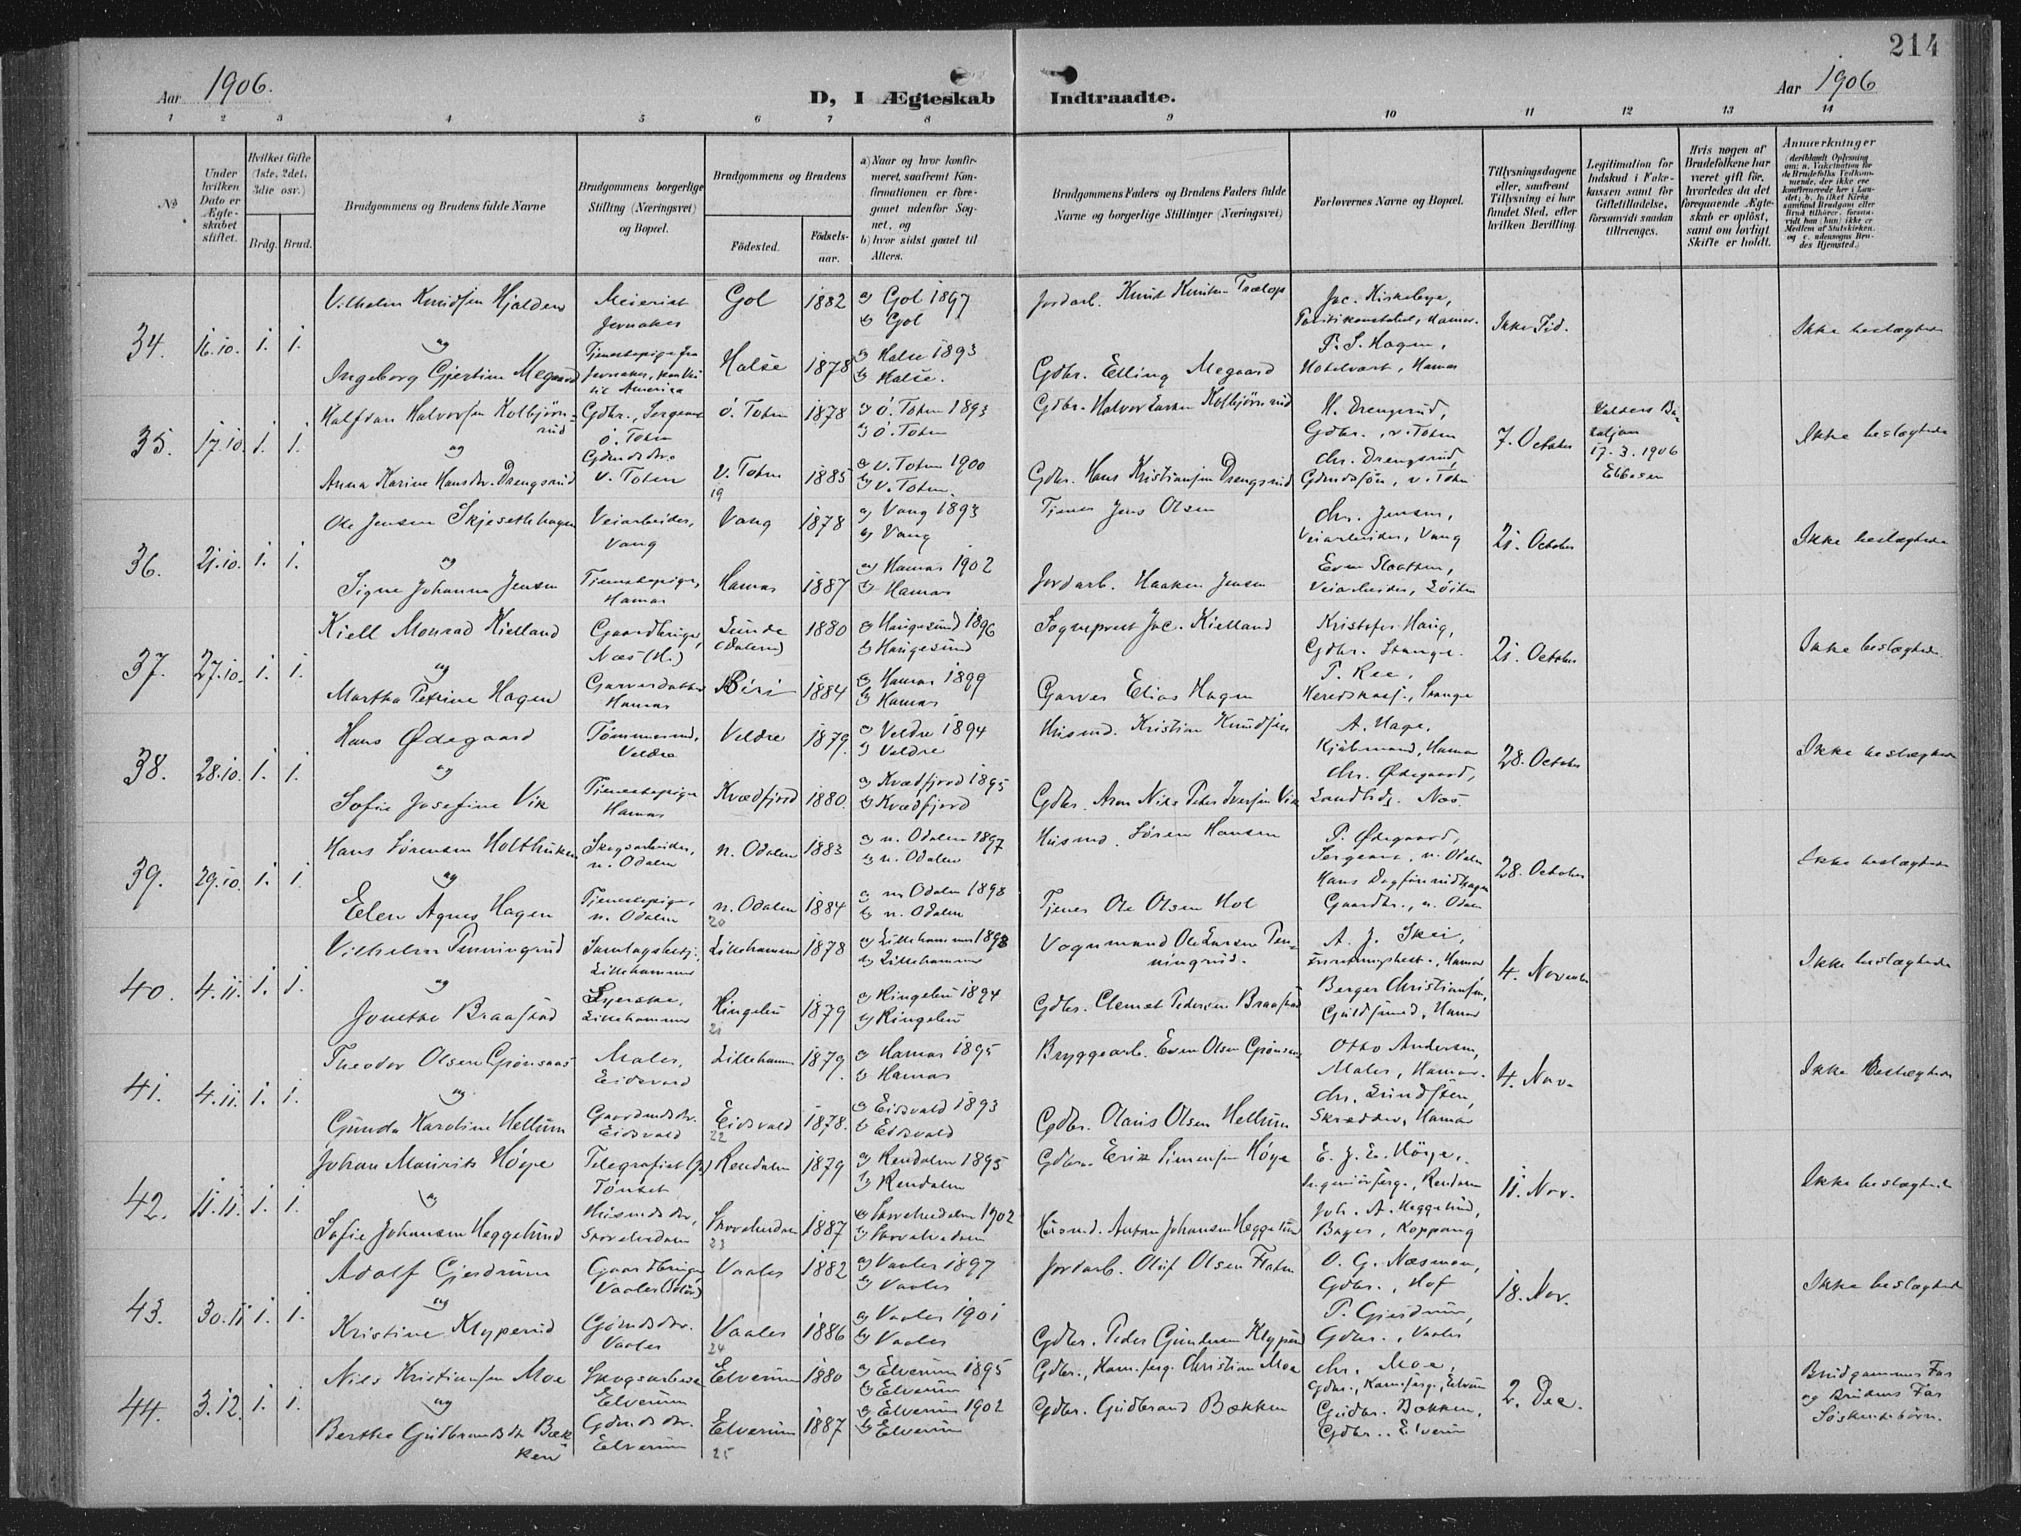 214
Aar 1906.
D, I Ægteskab Indtraadte.
Aar 1906
1 2 3 4 5 6 7 8 9 10 11 12 13 14
No
Under hvilken Dato er Ægteskabet stiftet.
Hvilket Gifte (1ste, 2det, 3die osv.)
Brdg. Brud.
Brudgommens og Brudens fulde Navne
Brudgommens borgerlige Stilling (Næringsvei) og Bopæl.
Brudgommens og Brudens
Fødested. Fødselsaar.
a) Naar og hvor konfirmeret, saafremt Konfirmationen er foregaaet udenfor Sognet, og
b) hvor sidst gaaet til Alters.
Brudgommens Faders og Brudens Faders fulde Navne og borgerlige Stillinger (Næringsvei)
Forlovernes Navne og Bopæl.
Tillysningsdagene eller, saafremt Tillysning ei har fundet Sted, efter hvilken Bevilling.
Legitimation for Indskud i Enkekassen samt for Giftetilladelse, forsaavidt saadan tiltrænges.
Hvis nogen af Brudefolkene har været gift før, hvorledes da det foregaaende Ægteskab er opløst, samt om lovligt Skifte er holdt.
Anmærkninger
34. 16.10. 1. 1.
Vilhelm Knudsen Hjalden
Meierist Jevnaker
Gol 1882
a) Gol 1897
b) Gol
Jordarb. Knut Knutsen
Jac. Kirkebye,
Hamar.
Ikke Tid.
Ikke beslægtede
og
Ingeborg Gjertine Megaard
Tjenestepige fra Jevnaker, til America
Halse 1878
a) Halse 1893
b) Halse.
Gdbr. Elling Megaard
P. S. Hagen,
Hotelvært, Hamar
35. 17.10. 1. 1.
Halfdan Halvorsen Kolbjørnsrud
Gdbr., Sergeant Ø. Toten
Ø. Toten 1878
a) Ø. Toten 1893
b) Ø. Toten
Gdbr. Halvor Larsen Kolbjørnsrud
H. Drengsrud,
Gdbr., v. Toten
7. October
17.3.1906
Ebbesen
Ikke beslægtede
og
Anna Karine Hansdr. Drengsrud
Gdmdsdr. V. Toten
V. Toten 1885
19
a) V. Toten 1900
b) V. Toten.
Gdbr. Hans Kristiansen Drengsrud
Chr. Drengsrud,
Gdmdssøn, v. Toten
36. 21.10. 1. 1.
Ole Jensen Skjesethhagen
Veiarbeider, Vang
Vang 1878
a) Vang 1893
b) Vang
Tjener Jens Olsen
Chr. Jensen,
Veiarbeider, Vang
21. October
Ikke beslægtede
og
Signe Johanne Jensen
Tjenestepige, Hamar
Hamar 1887
a) Hamar 1902
b) Hamar
Jordarb. Haaken Jensen
Even Slaatten,
Veiarbeider, Løiten
37. 27.10. 1. 1.
Kiell Monrad Kielland
Gaardbruger, Næs (H.)
Sunde 1880
a) Haugesund 1896
b) Haugesund
Sogneprest Jac. Kielland
Kristofer Haug,
Gdbr. Stange.
21. October
Ikke beslægtede.
og
Martha Petrine Hagen
Garverdatter Hamar
Biri 1884
a) Hamar 1899
b) Hamar
Garver Elias Hagen
P. Ree,
Stange
38. 28.10. 1. 1.
Hans Ødegaard
Tømmermd., Veldre
Veldre 1879.
a) Veldre 1894
b) Veldre
Husmd. Kristian Knudsen
A. Hage,
Kjøbmand, Hamar
28. October
Ikke beslægtede
og
Sofie Josefine Vik
Tjenestepige Hamar
Kvædfjord 1880.
a) Kvædfjord 1895
b) Kvædfjord
Gdbr. Aron Nils Peter Iversen Vik
Chr. Ødegaard,
Næs.
39. 29.10. 1. 1.
Hans Sørensen Holthuken
Skogsarbeider, n. Odalen
n. Odalen 1883
a) n. Odalen 1897
b) n. Odalen
Husmd. Søren Hansen
P. Ødegaard,
Sergeant, n. Odalen
28. October
Ikke beslægtede
og
Elen Agnes Hagen
Tjenestepige, n. Odalen
n. Odalen 1884
20
a) n. Odalen 1898
b) n. Odalen
Tjener Ole Olsen Hol
Hans Dagfinrudhagen
Gaardbr., n. Odalen
40. 4.11. 1. 1.
Vilhelm Penningrud
Lillehammer
Lillehammer 1878
a) Lillehammer 1893
b) Lillehammer
Vognmand Ole Larsen Penningrud.
A. J. Skei,
Hamar
4. Novemb.
Ikke beslægtede
og
Jonette Braastad
Syerske, Lillehammer
Ringebu 1879
21
a) Ringebu 1894
b) Ringebu
Gdbr. Clemet Pedersen Braastad
Berger Christiansen,
Guldsmed, Hamar
41. 4.11. 1. 1.
Theodor Olsen Grønsaas
Maler, Eidsvold
Lillehammer 1879.
a) Hamar 1895
b) Hamar
Bryggearb. Even Olsen Grønsaas
Otto Andersen,
Maler, Hamar.
4. Nov.
Ikke beslægtede
og
Gunda Karoline Hellum
Gaardmdsdr. Eidsvold
Eidsvold 1878.
22
a) Eidsvold 1893
b) Eidsvold
Gdbr. Olaus Olsen Hellum
Chr. Lundsten,
Skrædder, Hamar
42. 11.11. 1. 1.
Johan Mauritz Høye
Telegrafist Tönset
Rendalen 1879
a) Rendalen 1895
b) Rendalen
Gdbr. Erik Simensen Høye
E. J. E. Höye,
Rendalen
11. Nov.
Ikke beslægtede
og
Sofie Johansen Heggelund
Husmdsdr., Storelvedalen
Storelvedalen 1887
23
a) Storelvedalen 1902
b) Storelvedalen
Husmd. Anton Johansen Heggelund
Joh. A. Heggelund,
Bager, Koppang
43. 30.11 1. 1.
Adolf Gjerdrum
Gaardbruger Vaaler (Solør)
Vaaler 1882
a) Vaaler 1897
b) Vaaler
Jordarb. Oluf Olsen Flaten
O. G. Næsmoen,
Gdbr., Hof
18. Nov.
Ikke beslægtede
og
Kristine Klyperud
Gdmdsdr. Vaaler
Vaaler 1886
24
a) Vaaler 1901
b) Vaaler
Gdbr. Peder Gundersen Klyperud
P. Gjerdrum,
Gdbr., Vaaler
44. 3.12. 1. 1.
Nils Kristiansen Moe
Skogsarbeider Elverum
Elverum 1880
a) Elverum 1895
b) Elverum
Gdbr., Christian Moe
Chr. Moe,
Gdbr., Elverum
2. Dec.
Brudgommens Far
og Brudens Far
Søskendebørn.
og
Berthe Gudbrandsdr. Bækken
Gdmdsdr. Elverum
Elverum 1887
25
a) Elverum 1902
b) Elverum
Gdbr. Gudbrand Bækken
Gudbr. Bækken,
Gdbr., Elverum